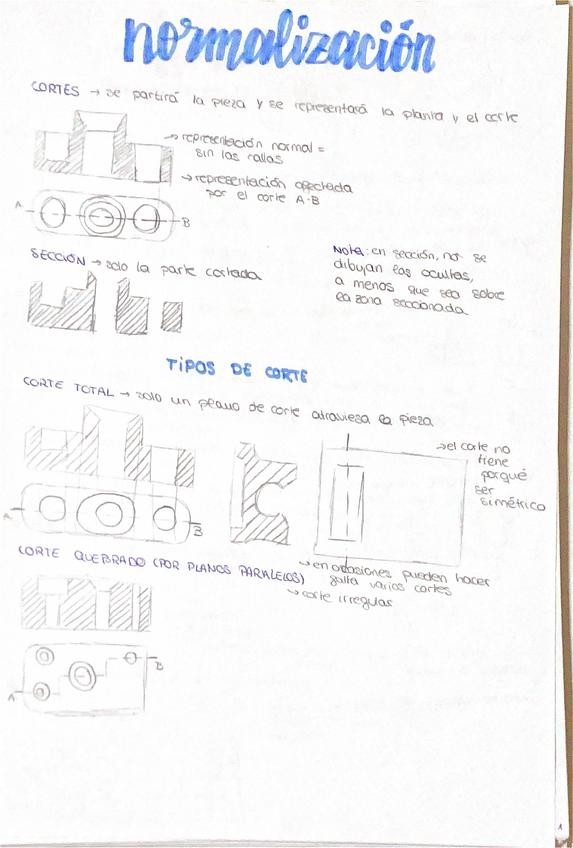 normalización
CORTES → se partirá la pieza y se representará la planta y el corte
→ representación normal =
sin las rallas
→ representación afectada
por el corte A-B
A
B
SECCIÓN → solo la parte cortada
Nota: en sección, no se
dibujan las ocultas,
a menos que sea sobre
la zona seccionada
TIPOS DE CORTE
CORTE TOTAL → solo un plano de corte atraviesa la pieza
→ el corte no
tiene
porqué
ser
simétrico
A
B
CORTE QUEBRADO (POR PLANOS PARALELOS)
→ en ocasiones pueden hacer
falta varios cortes
→ corte irregular
B
A